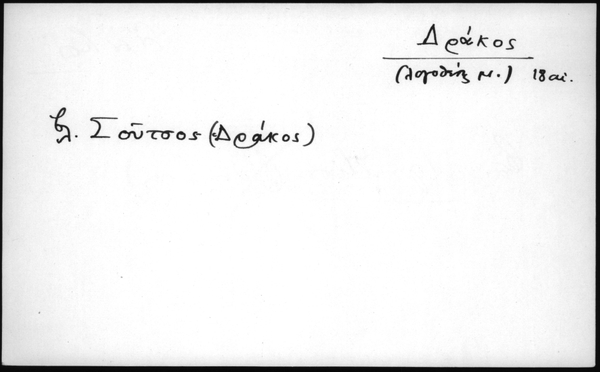 Δράκος
(λογοθέτης μ.) 18 αἰ.
βλ. Σοῦτσος (Δράκος)